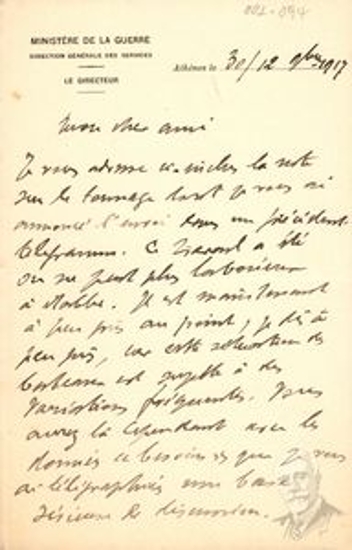 001-094
MINISTÈRE DE LA GUERRE
DIRECTION GÉNÉRALE DES SERVICES
LE DIRECTEUR
Athènes le 30/12 9bre 1917
Mon cher ami
Je vous adresse ci-inclus la note
sur le tonnage dont je vous ai
annoncé l'envoi dans un précédent
télégramme. Ce travail a été
on ne peut plus laborieux
à établir. Il est maintenant
à peu près au point; je dis à
peu près, car cette situation des
bateaux est sujette à des
variations fréquentes. Vous
aurez là cependant avec les
données de besoins que je vous
ai télégraphiés une base
sérieuse de discussion.